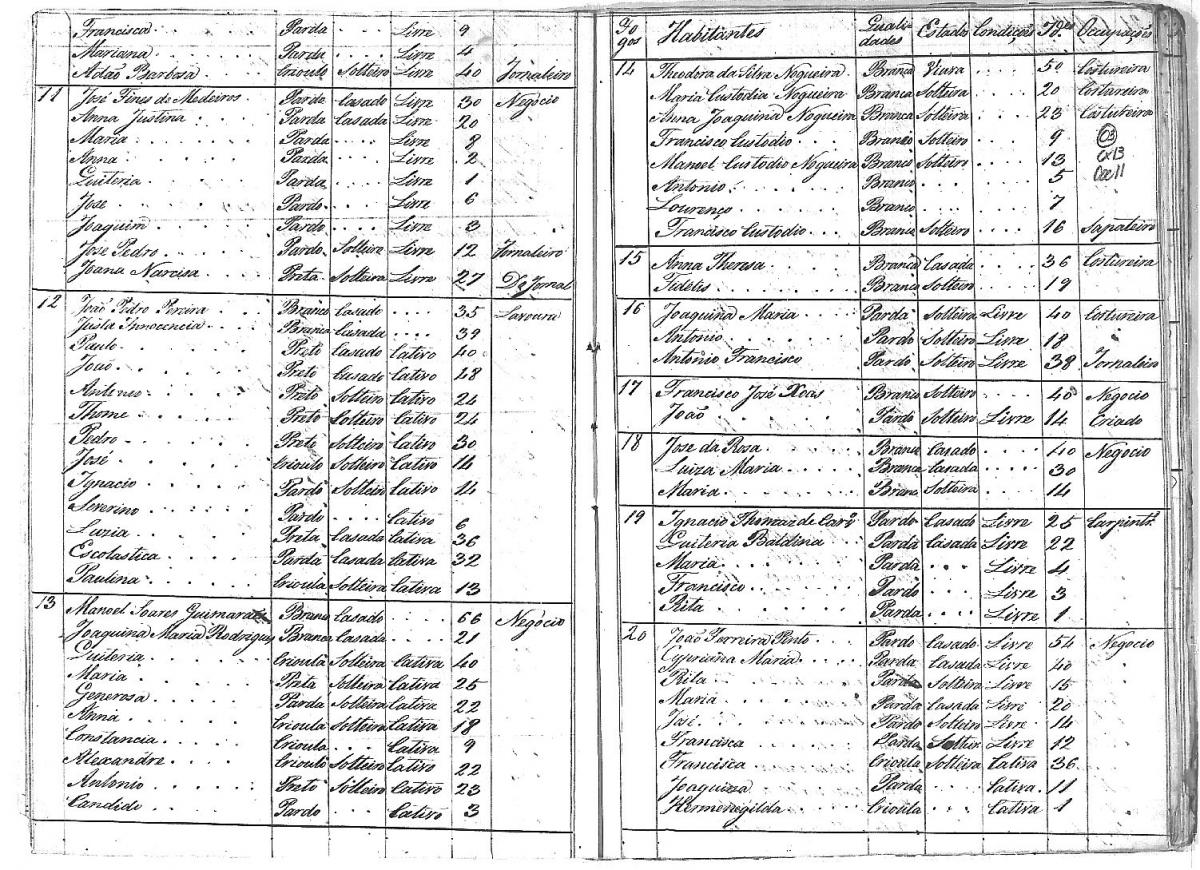 Francisca Parda Livre 9
Mariana Parda Livre 4
Adão Barbosa Crioulo Solteiro Livre 40 Jornaleiro
11 José Pires de Medeiros Pardo Casado Livre 30 Negocio
Anna Justina Parda Casada Livre 20
Maria Parda Livre 8
Anna Parda Livre 2
Quiteria Parda Livre 1
Jose Pardo Livre 6
Joaquim Pardo Livre 3
Jose Pedro Pardo Solteiro Livre 12 Jornaleiro
Joana Narcisa Preta Solteira Livre 27 De Jornal
12 João Pedro Pereira Branco Casado 35 Lavoura
Justa Innocencia Branca Casada 39
Paulo Preto Casado Cativo 40
João Preto Casado Cativo 48
Antonio Preto Solteiro Cativo 24
Thome Preto Solteiro Cativo 24
Pedro Preto Solteiro Cativo 30
José Crioulo Solteiro Cativo 14
Ignacio Pardo Solteiro Cativo 14
Severino Pardo Cativo 6
Luzia Preta Casada Cativa 36
Escolastica Parda Casada Cativa 32
Paulina Crioula Solteira Cativa 13
13 Manoel Soares Guimarães Branco Casado 66 Negocio
Joaquina Maria Rodrigues Branca Casada 21
Quiteria Crioula Solteira Cativa 40
Maria Preta Solteira Cativa 25
Generosa Parda Solteira Cativa 22
Anna Crioula Solteira Cativa 18
Constancia Crioula Cativa 9
Alexandre Crioulo Solteiro Cativo 22
Antonio Preto Solteiro Cativo 23
Candido Pardo Cativo 3
Fogos Habitantes Qualidades Estados Condições Ides Occupações
14 Theodora da Silva Nogueira Branca Viuva 50 Costureira
Maria Custodia Nogueira Branca Solteira 20 Costureira
Anna Joaquina Nogueira Branca Solteira 23 Costureira
Francisco Custodio Branco Solteiro 9
Manoel Custodio Nogueira Branco Solteiro 13
Antonio Branco 5
Lourenço Branco 7
Francisco Custodio Branco Solteiro 16 Sapateiro
03
cx13
15 Anna Theresa Branca Casada 36 Costureira
Fidelis Branco Solteiro 19
16 Joaquina Maria Parda Solteira Livre 40 Costureira
Antonio Pardo Solteiro Livre 18
Antonio Francisco Pardo Solteiro Livre 38 Jornaleiro
17 Francisco José Branco Solteiro 40 Negocio
João Pardo Solteiro Livre 14 Criado
18 Jose da Rosa Branco Casado 40 Negocio
Luiza Maria Branca Casada 30
Maria Branca Solteira 14
19 Ignacio Thomaz de Carv.º Pardo Casado Livre 25 Carpintr.º
Quiteria Baldina Parda Casada Livre 22
Maria Parda Livre 4
Francisco Pardo Livre 3
Rita Parda Livre 1
20 João Ferreira Pinto Pardo Casado Livre 54 Negocio
Cypriana Maria Parda Casada Livre 40
Rita Parda Solteira Livre 15
Maria Parda Casada Livre 20
José Pardo Solteiro Livre 14
Francisca Parda Solteira Livre 12
Francisca Crioula Solteira Cativa 36
Joaquina Parda Cativa 11
Hermenegilda Crioula Cativa 1